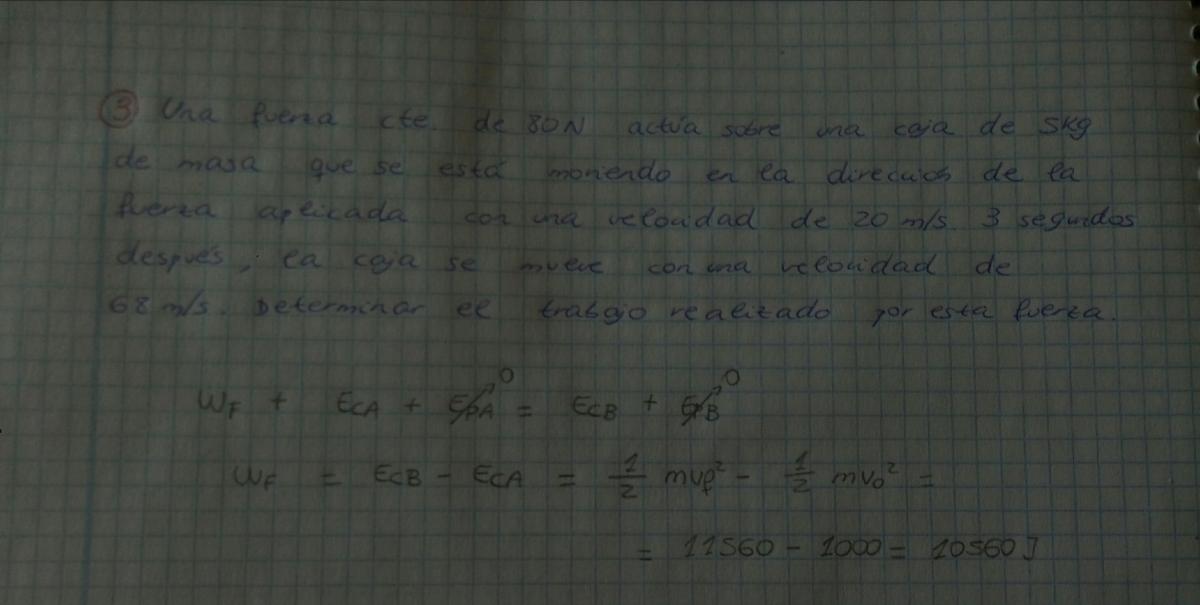 ③ Una fuerza cte. de 80N actúa sobre una caja de 5kg
de masa que se está moviendo en la direccion de la
fuerza aplicada con una velocidad de 20 m/s. 3 segundos
después, la caja se mueve con una velocidad de
68 m/s. Determinar el trabajo realizado por esta fuerza.
WF + ECA + EpA = ECB + EpB
0 0
WF = ECB - ECA = 1/2 mvf² - 1/2 mv0² =
= 11560 - 1000 = 10560 J